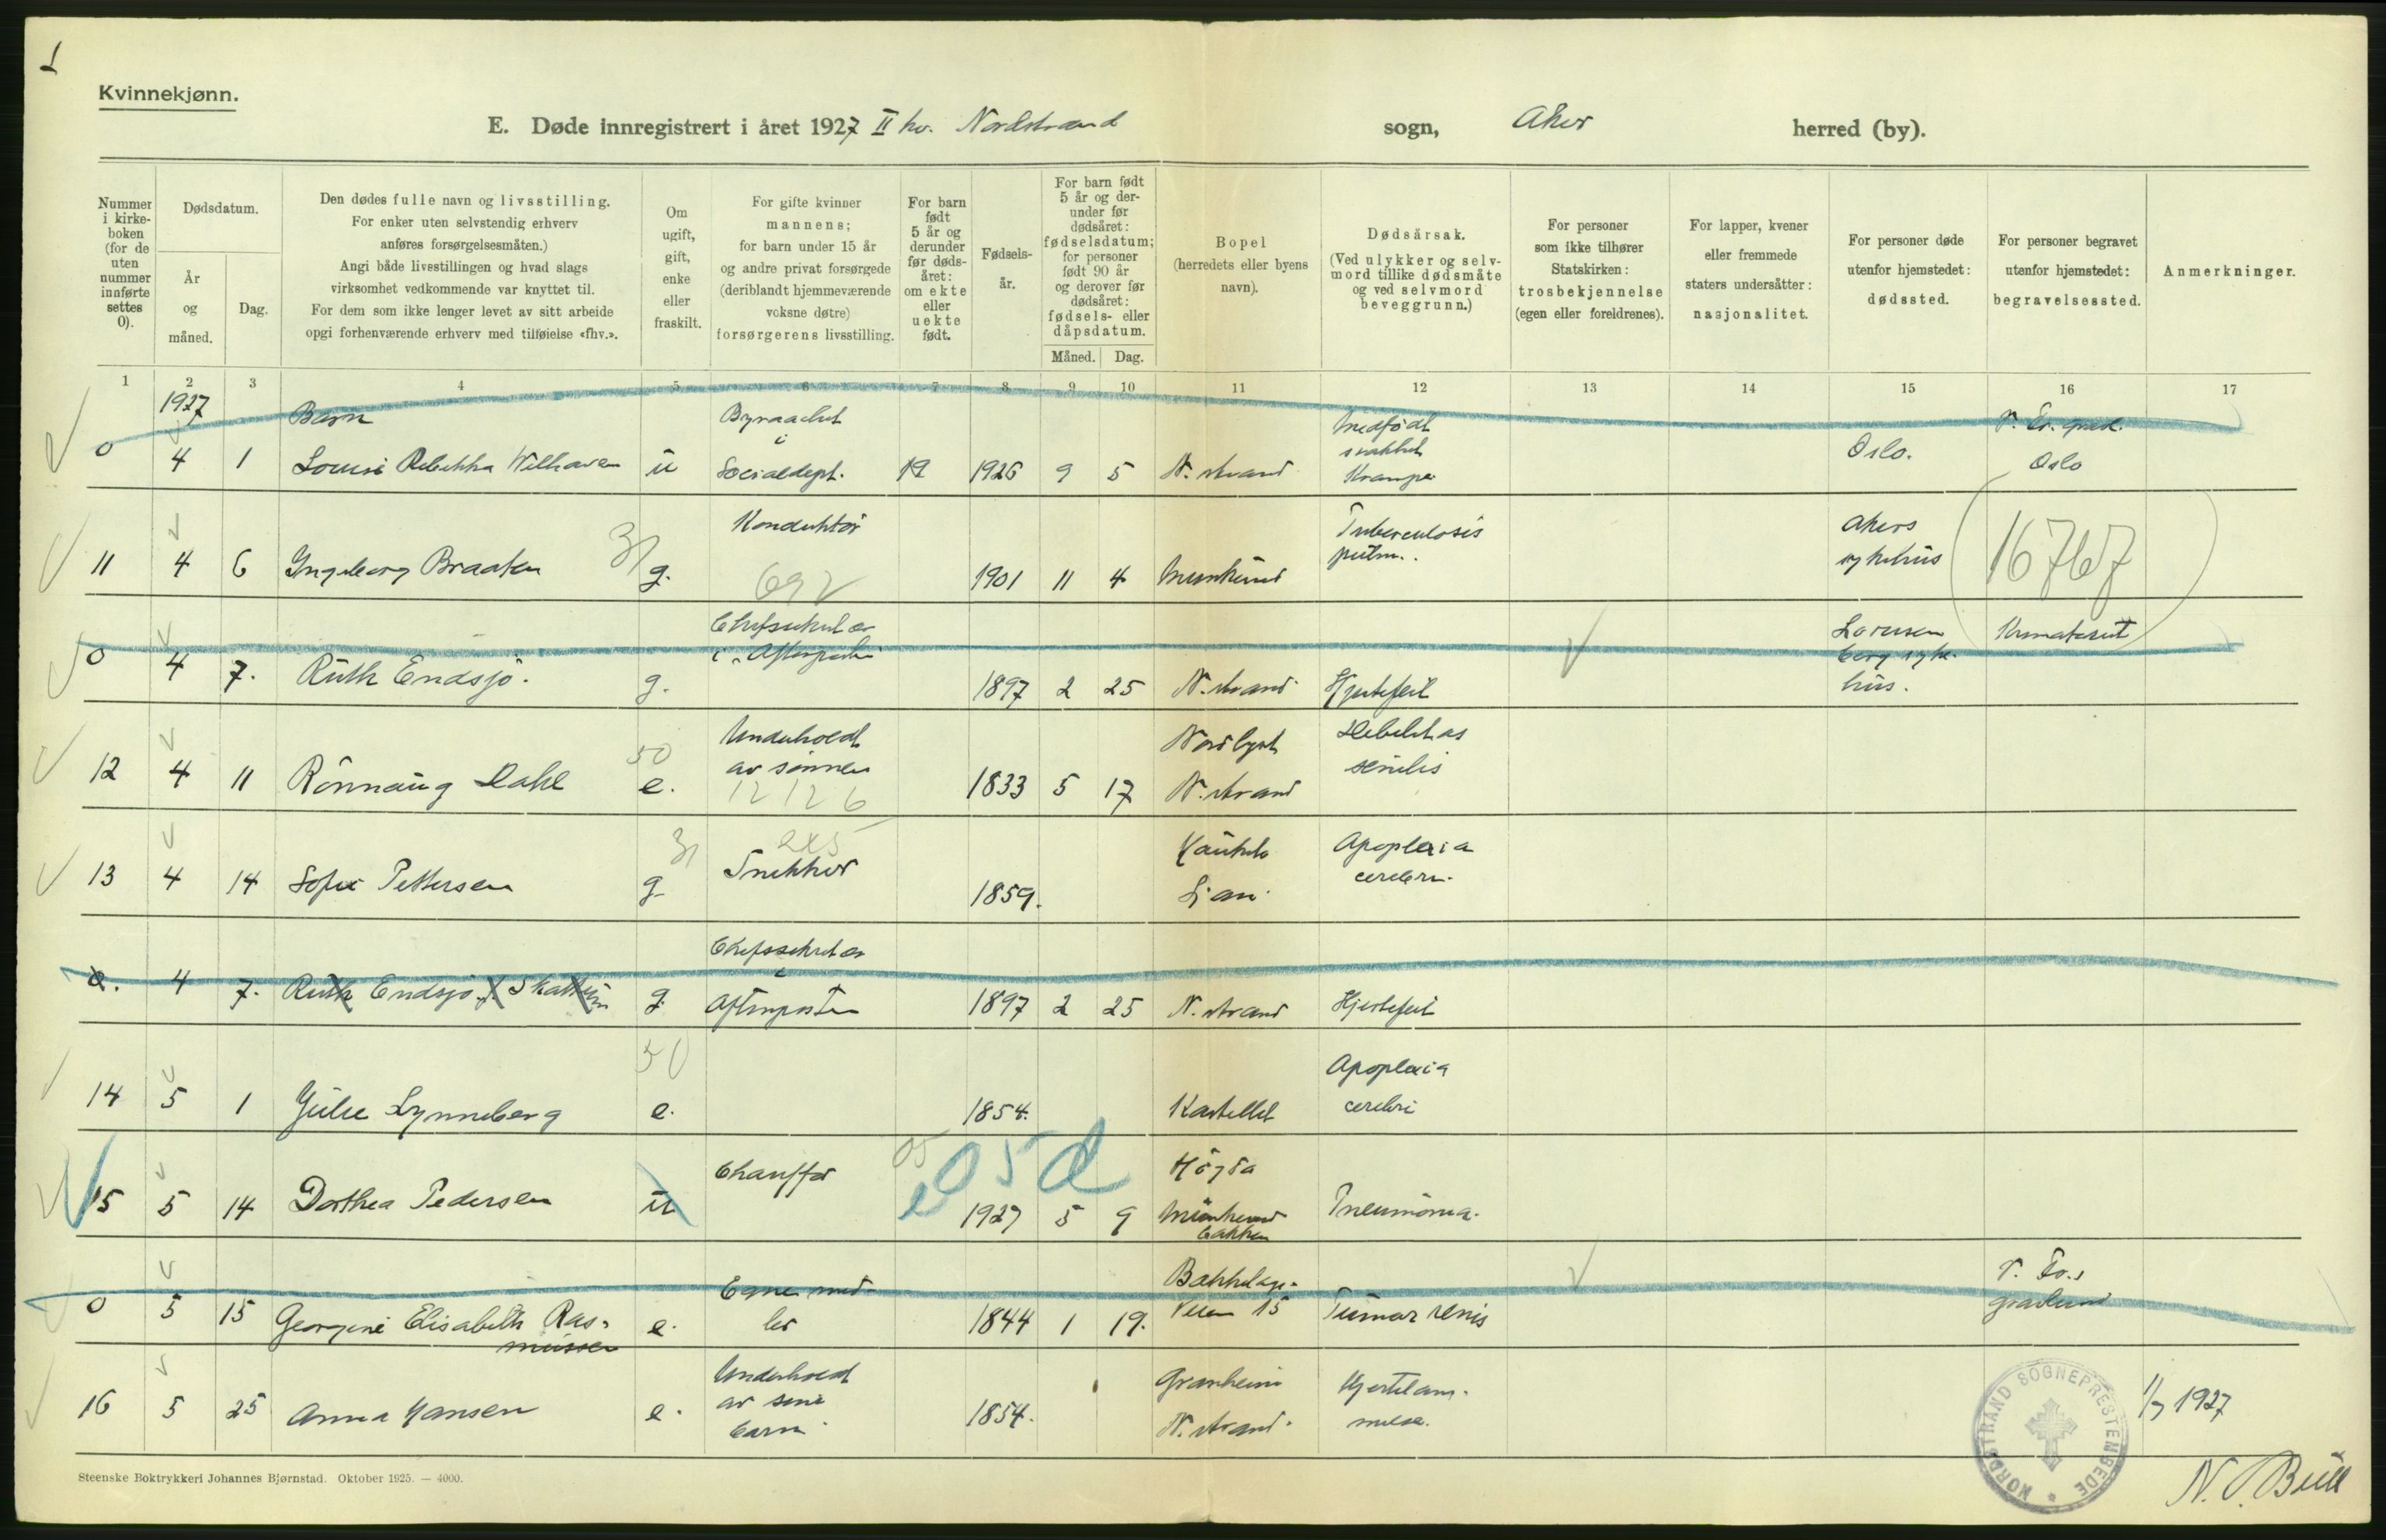 1
Kvinnekjønn.
E. Døde innregistrert i året 1927 II kv. Nordstrand sogn, Aker herred (by).
Nummer i kirke-boken (for de uten nummer innførte settes 0).
Dødsdatum.
År og måned.
Dag.
Den dødes fulle navn og livsstilling.
For enker uten selvstendig erhverv
anføres forsørgelsesmåten.)
Angi både livsstillingen og hvad slags
virksomhet vedkommende var knyttet til.
For dem som ikke lenger levet av sitt arbeide
opgi forhenværende erhverv med tilføielse «fhv.».
Om ugift, gift, enke eller fraskilt.
For gifte kvinner
mannens;
for barn under 15 år
og andre privat forsørgede
(deriblandt hjemmeværende
voksne døtre)
forsørgerens livsstilling.
For barn født 5 år og derunder før døds-året: om ekte eller uekte født.
Fødsels-år.
For barn født 5 år og der-under før dødsåret: fødselsdatum; for personer født 90 år og derover før dødsåret: fødsels- eller dåpsdatum.
Måned. Dag.
Bopel
(herredets eller byens
navn).
Dødsårsak.
(Ved ulykker og selv-
mord tillike dødsmåte
og ved selvmord
beveggrunn.)
For personer
som ikke tilhører
Statskirken:
trosbekjennelse
(egen eller foreldrenes).
For lapper, kvener
eller fremmede
staters undersåtter:
nasjonalitet.
For personer døde
utenfor hjemstedet:
dødssted.
For personer begravet
utenfor hjemstedet:
begravelsessted.
Anmerkninger.
1 2 3 4 5 6 7 8 9 10 11 12 13 14 15 16 17
1927 Barn Byraachef Medfødt V. Fr. grav.
i svakhet
0 4 1 Louise Rebekka Welhaven u Socialdept. 1926 9 5 N. strand Krampe Oslo. Oslo
Konduktør Tuberculosis Akers
11 4 6 Ingeborg Braaten 31 g. 692 1901 11 4 Munkerud pulm. sykehus 16767
Chefsekretær Lovisen Krematoriet
i "Aftenposten" berg syke-
0 4 7. Ruth Endsjø. g. 1897 2 25 N. strand Hjertefeil hus.
Underholdt Debilitas
12 4 11 Rønnaug Dahl 50 e. av sønnen 12126 1833 5 17 N. strand senilis
31 245 Apoplexia
13 4 14 Sofie Pettersen g Snekker 1859. Lian cerebri.
Chefssekretær
i
0. 4 7. Ruth Endsjø f. Skattum g. Aftenposten 1897 2 25 N. strand Hjertefeil
50 Apoplexia
14 5 1 Julie Lynneberg e. 1854. Kastellet cerebri
Chauffør 05 05 d
15 5 14 Dorthea Pedersen u e 1927 5 9 Munkerud Pneumonia.
bakken
Egne mid- Bekkelags- V. Fr.s
0 5 15 Georgine Elisabeth Ras- e. ler 1844 1 19. veien 15 Tumor renis gravlund
mussen
Underholdt Granheim Hjertelam-
16 5 25 Anna Hansen e. av sine 1854. N. strand. melse. 1/7 1927
barn
NORDSTRAND SOGNEPRESTEMBEDE
Steenske Boktrykkeri Johannes Bjørnstad. Oktober 1925. — 4000.
N. J. Bull